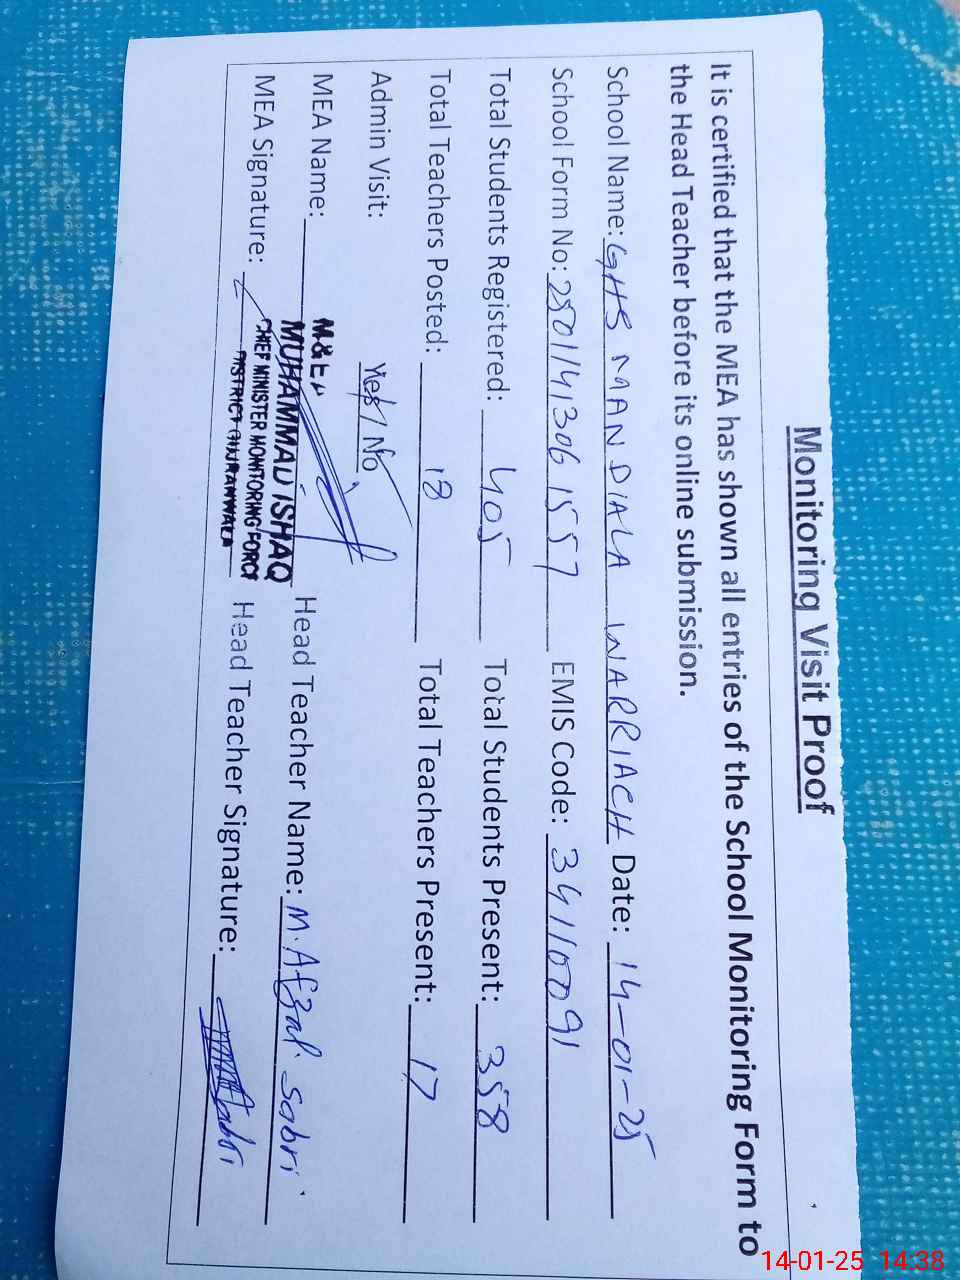 Monitoring Visit Proof
It is certified that the MEA has shown all entries of the School Monitoring Form to
the Head Teacher before its online submission.
School Name: GHS MANDIALA WARRIACH Date: 14-01-25
School Form No: 2501141306 1557 EMIS Code: 34110091
Total Students Registered: 405 Total Students Present: 358
Total Teachers Posted: 18 Total Teachers Present: 17
Admin Visit: Yes / No
MEA Name: MUHAMMAD ISHAQ Head Teacher Name: M. Afzal Sabri
CHIEF MINISTER MONITORING FORCE
MEA Signature: DISTRICT GUJRANWALA Head Teacher Signature:
14-01-25 14:38